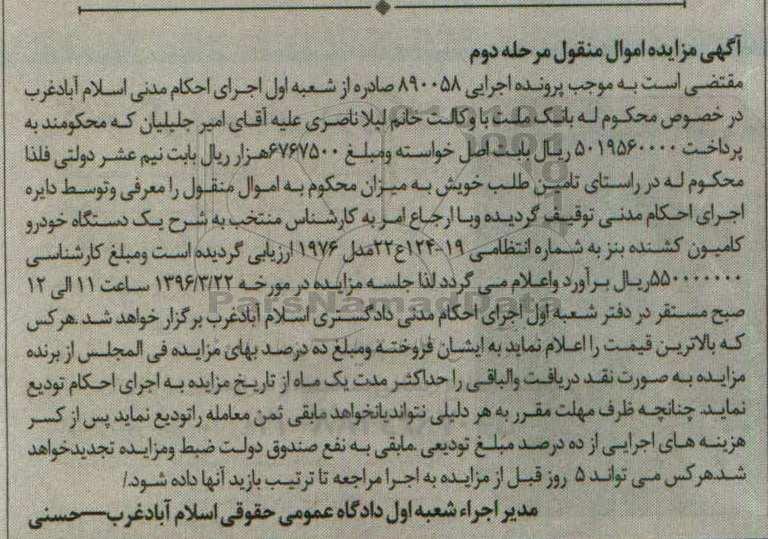 آگهی مزایده اموال منقول مرحله دوم
مقتضی است به موجب پرونده اجرایی ۸۹۰۰۵۸ صادره از شعبه اول اجرای احکام مدنی اسلام آبادغرب
در خصوص محکوم له بانک ملت با وکالت خانم لیلا ناصری علیه آقای امیر جلیلیان که محکومند به
پرداخت ۵۰۱۹۵۶۰۰۰۰ ریال بابت اصل خواسته ومبلغ ۶۷۶۷۵۰۰هزار ریال بابت نیم عشر دولتی فلذا
محکوم له در راستای تامین طلب خویش به میزان محکوم به اموال منقول را معرفی وتوسط دایره
اجرای احکام مدنی توقیف گردیده وبا ارجاع امر به کارشناس منتخب به شرح یک دستگاه خودرو
کامیون کشنده بنز به شماره انتظامی ۱۹-۱۲۴ع۲۲مدل ۱۹۷۶ ارزیابی گردیده است ومبلغ کارشناسی
۵۵۰۰۰۰۰۰۰ریال برآورد واعلام می گردد لذا جلسه مزایده در مورخه ۱۳۹۶/۳/۲۲ ساعت ۱۱ الی ۱۲
صبح مستقر در دفتر شعبه اول اجرای احکام مدنی دادگستری اسلام آبادغرب برگزار خواهد شد .هرکس
که بالاترین قیمت را اعلام نماید به ایشان فروخته ومبلغ ده درصد بهای مزایده فی المجلس از برنده
مزایده به صورت نقد دریافت والباقی را حداکثر مدت یک ماه از تاریخ مزایده به اجرای احکام تودیع
نماید. چنانچه ظرف مهلت مقرر به هر دلیلی نتواندیانخواهد مابقی ثمن معامله راتودیع نماید پس از کسر
هزینه های اجرایی از ده درصد مبلغ تودیعی .مابقی به نفع صندوق دولت ضبط ومزایده تجدیدخواهد
شدهرکس می تواند ۵ روز قبل از مزایده به اجرا مراجعه تا ترتیب بازید آنها داده شود./
مدیر اجراء شعبه اول دادگاه عمومی حقوقی اسلام آبادغرب—حسنی
ParsNamadData